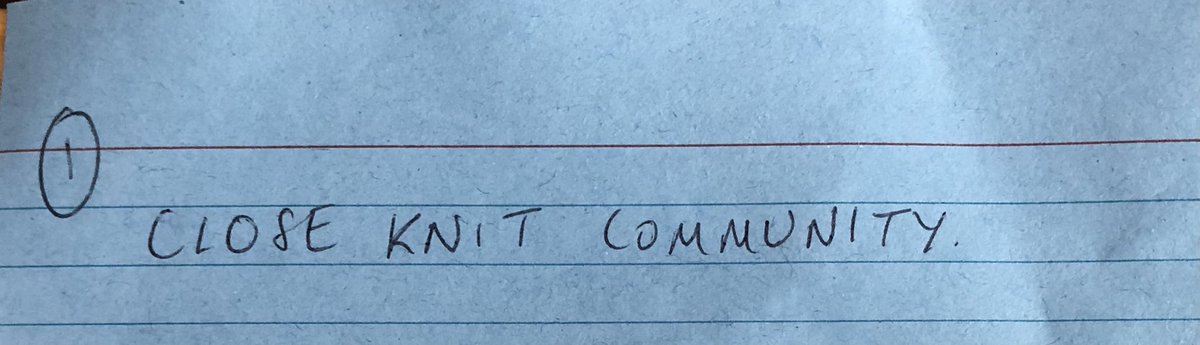 1
CLOSE KNIT COMMUNITY.